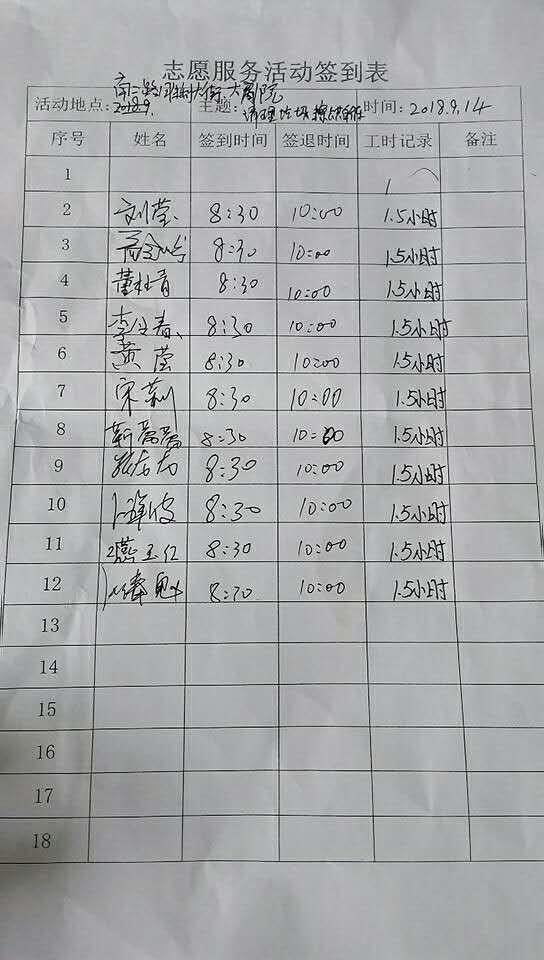 志愿服务活动签到表
活动地点: 2018.9. 主题: 清理垃圾 时间: 2018.9.14
序号 姓名 签到时间 签退时间 工时记录 备注
1
2 刘莹 8:30 10:00 1.5小时
3 8:30 10:00 1.5小时
4 董桂青 8:30 10:00 1.5小时
5 8:30 10:00 1.5小时
6 黄莹 8:30 10:00 1.5小时
7 宋莉 8:30 10:00 1.5小时
8 靳嵩嵩 8:30 10:00 1.5小时
9 8:30 10:00 1.5小时
10 8:30 10:00 1.5小时
11 8:30 10:00 1.5小时
12 8:30 10:00 1.5小时
13
14
15
16
17
18